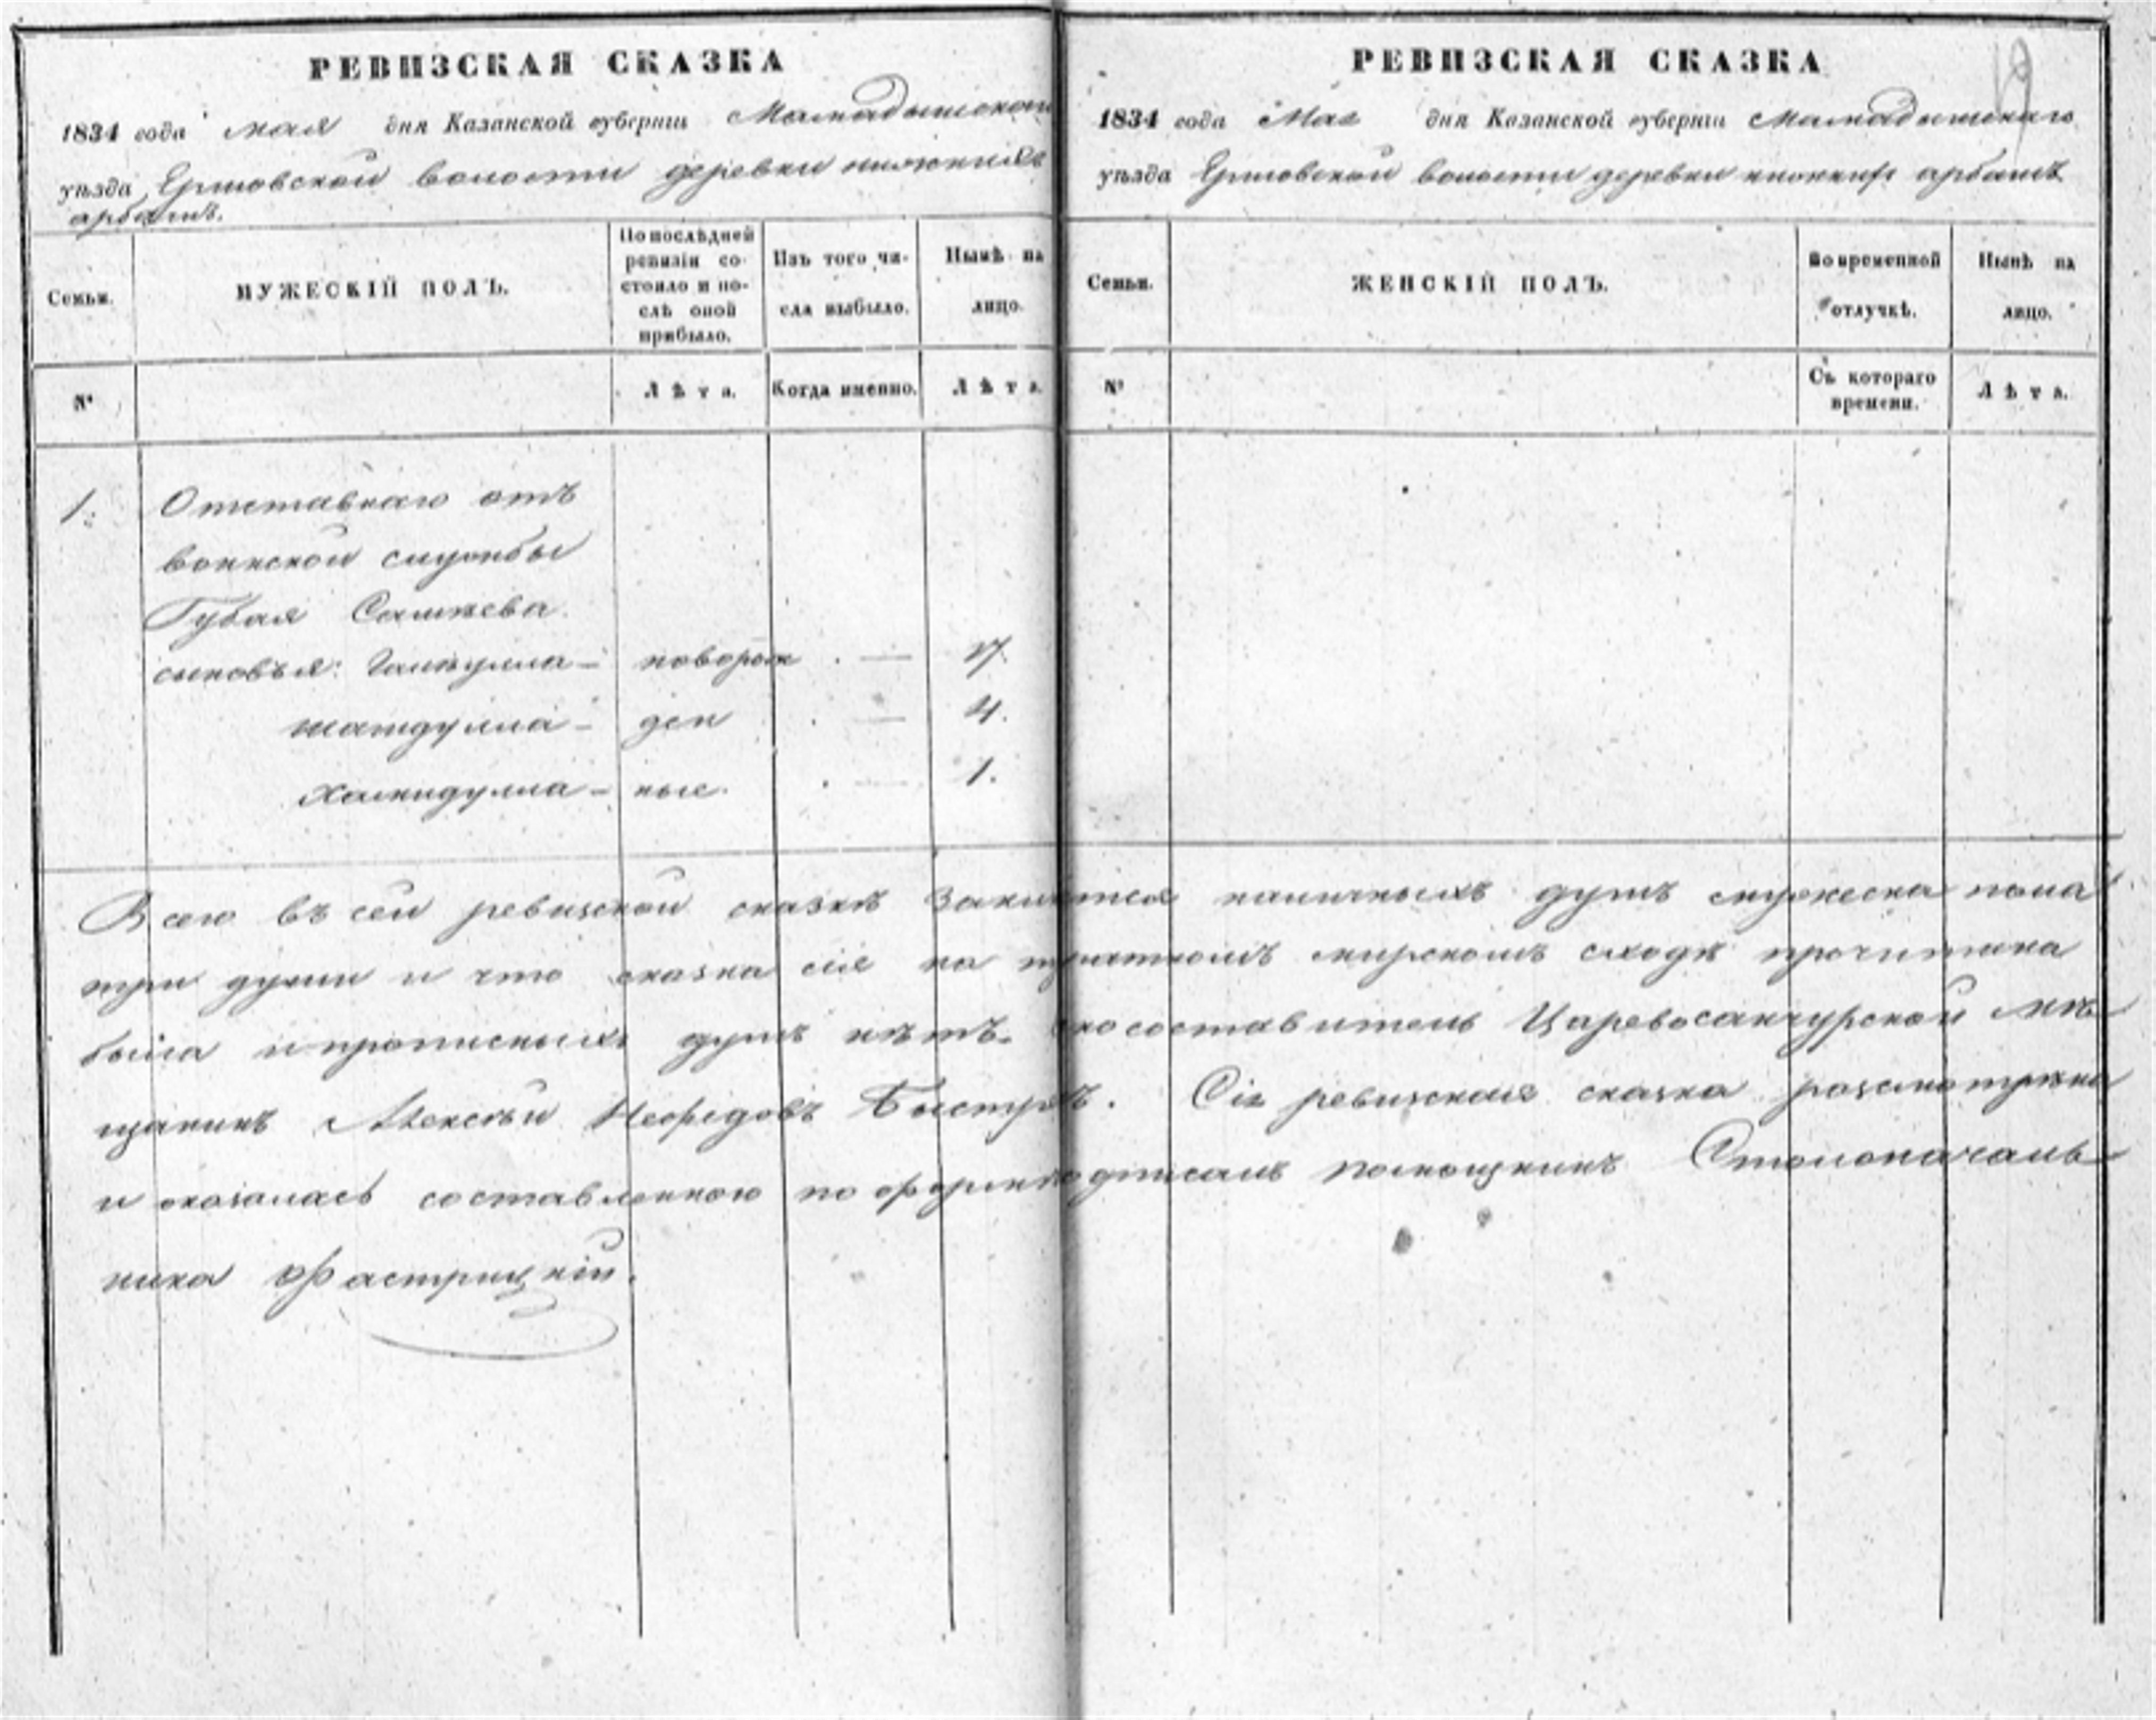 РЕВИЗСКАЯ СКАЗКА
1834 года мая дня Казанской губерніи Мамадышскаго
уѣзда Ершовской волости деревни нижнихъ
арбашъ.
Семьи.
МУЖЕСКІЙ ПОЛЪ.
По послѣдней ревизіи состояло и послѣ оной прибыло.
Изъ того числа выбыло.
Нынѣ на лицо.
№
Лѣта.
Когда именно.
Лѣта.
1.
Отставнаго отъ
воинской службы
Губая Сашнева
сыновья: Галиулла – новорож . — 17.
шагидулла – ден . — 4.
Хамидулла – ные. . — 1.
РЕВИЗСКАЯ СКАЗКА
19
1834 года Мая дня Казанской губерніи Мамадышскаго
уѣзда Ершовской волости деревни нижних арбашъ
Семьи.
ЖЕНСКІЙ ПОЛЪ.
Во временной отлучкѣ.
Нынѣ на лицо.
№
Съ котораго времени.
Лѣта.
Всего въ сей ревизской сказкѣ наличныхъ душъ мужеска пола
три души и что сказка сія на мирскомъ сходѣ прочитана
была и прописныхъ душъ нѣтъ. составитель Царевосанчурской мѣ
щанинъ Алексѣй Нефедовъ Быстровъ. Сія ревизская сказка розсмотрѣна
и оказалась составленною по формѣ подписалъ помощникъ Столоначаль
ника Фастрицкій.